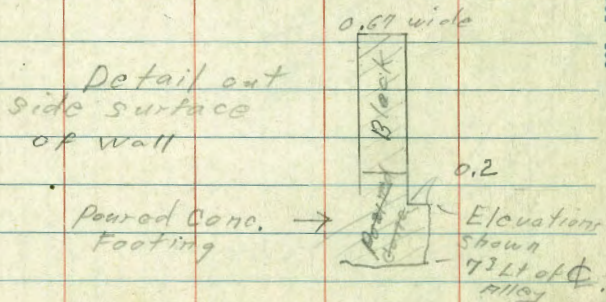 0.67 wide
Detail out
side surface
of Wall
Block
0.2
Poured Conc.
Footing
Poured
Conc
Elevations
shown
7³ Lt of ℄
Alley